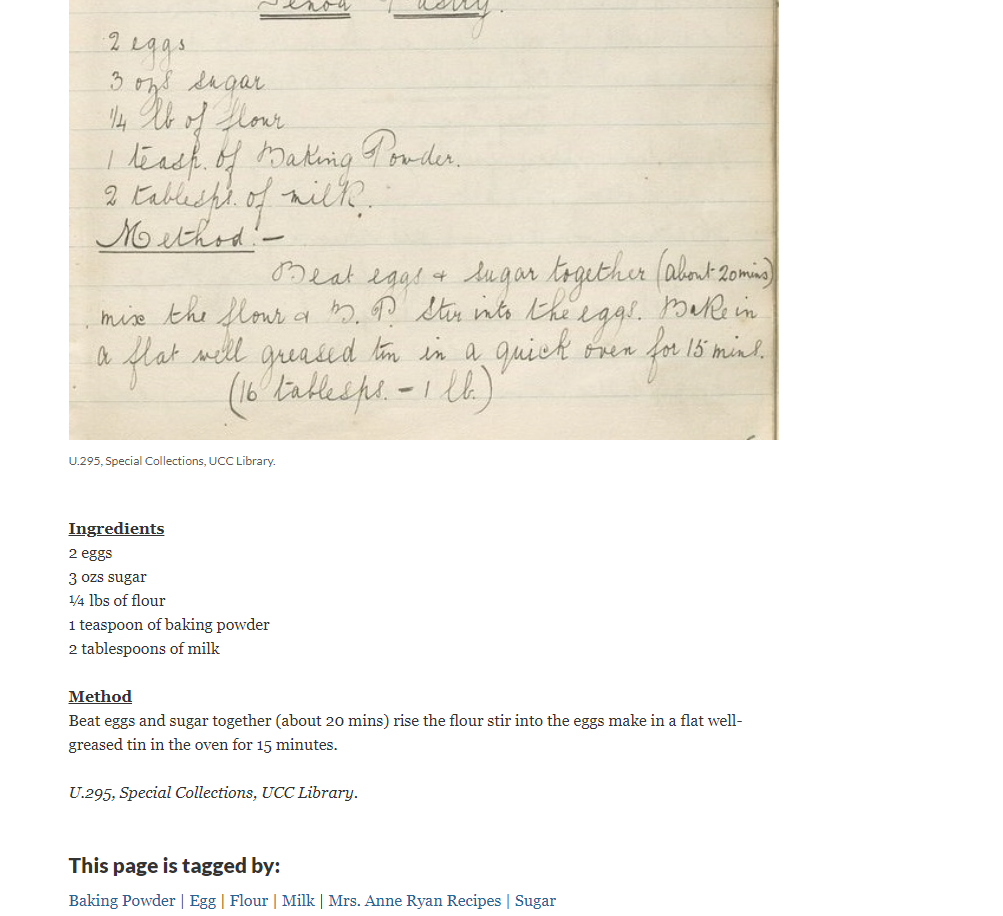 Genoa Pastry.
2 eggs
3 ozs sugar
1/4 lb of flour
1 teasp. of Baking Powder.
2 tablesps. of milk.
Method:-
Beat eggs + sugar together (about 20 mins)
mix the flour & B. P. Stir into the eggs. Bake in
a flat well greased tin in a quick oven for 15 mins.
(16 tablesps. - 1 lb.)
U.295, Special Collections, UCC Library.
Ingredients
2 eggs
3 ozs sugar
¼ lbs of flour
1 teaspoon of baking powder
2 tablespoons of milk
Method
Beat eggs and sugar together (about 20 mins) rise the flour stir into the eggs make in a flat well-
greased tin in the oven for 15 minutes.
U.295, Special Collections, UCC Library.
This page is tagged by:
Baking Powder | Egg | Flour | Milk | Mrs. Anne Ryan Recipes | Sugar